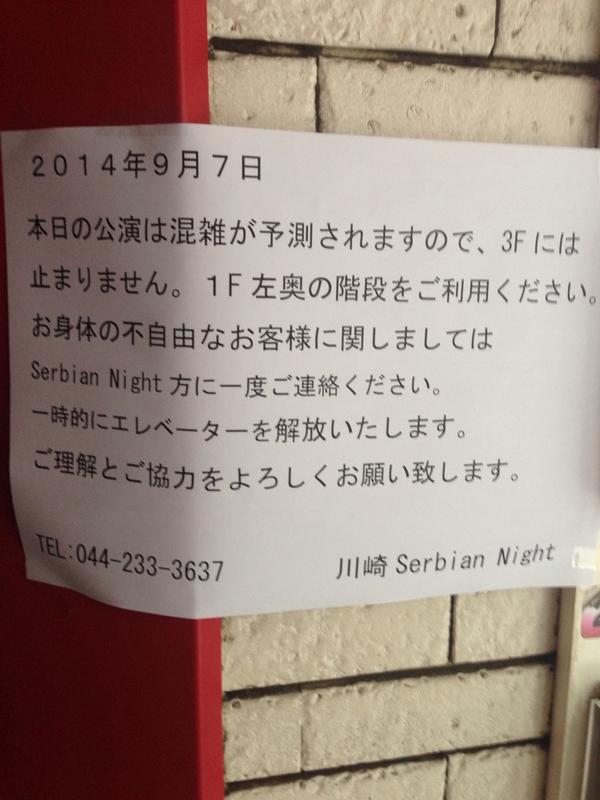 ２０１４年９月７日
本日の公演は混雑が予測されますので、3Fには
止まりません。１F左奥の階段をご利用ください。
お身体の不自由なお客様に関しましては
Serbian Night 方に一度ご連絡ください。
一時的にエレベーターを解放いたします。
ご理解とご協力をよろしくお願い致します。
TEL:044-233-3637 川崎 Serbian Night